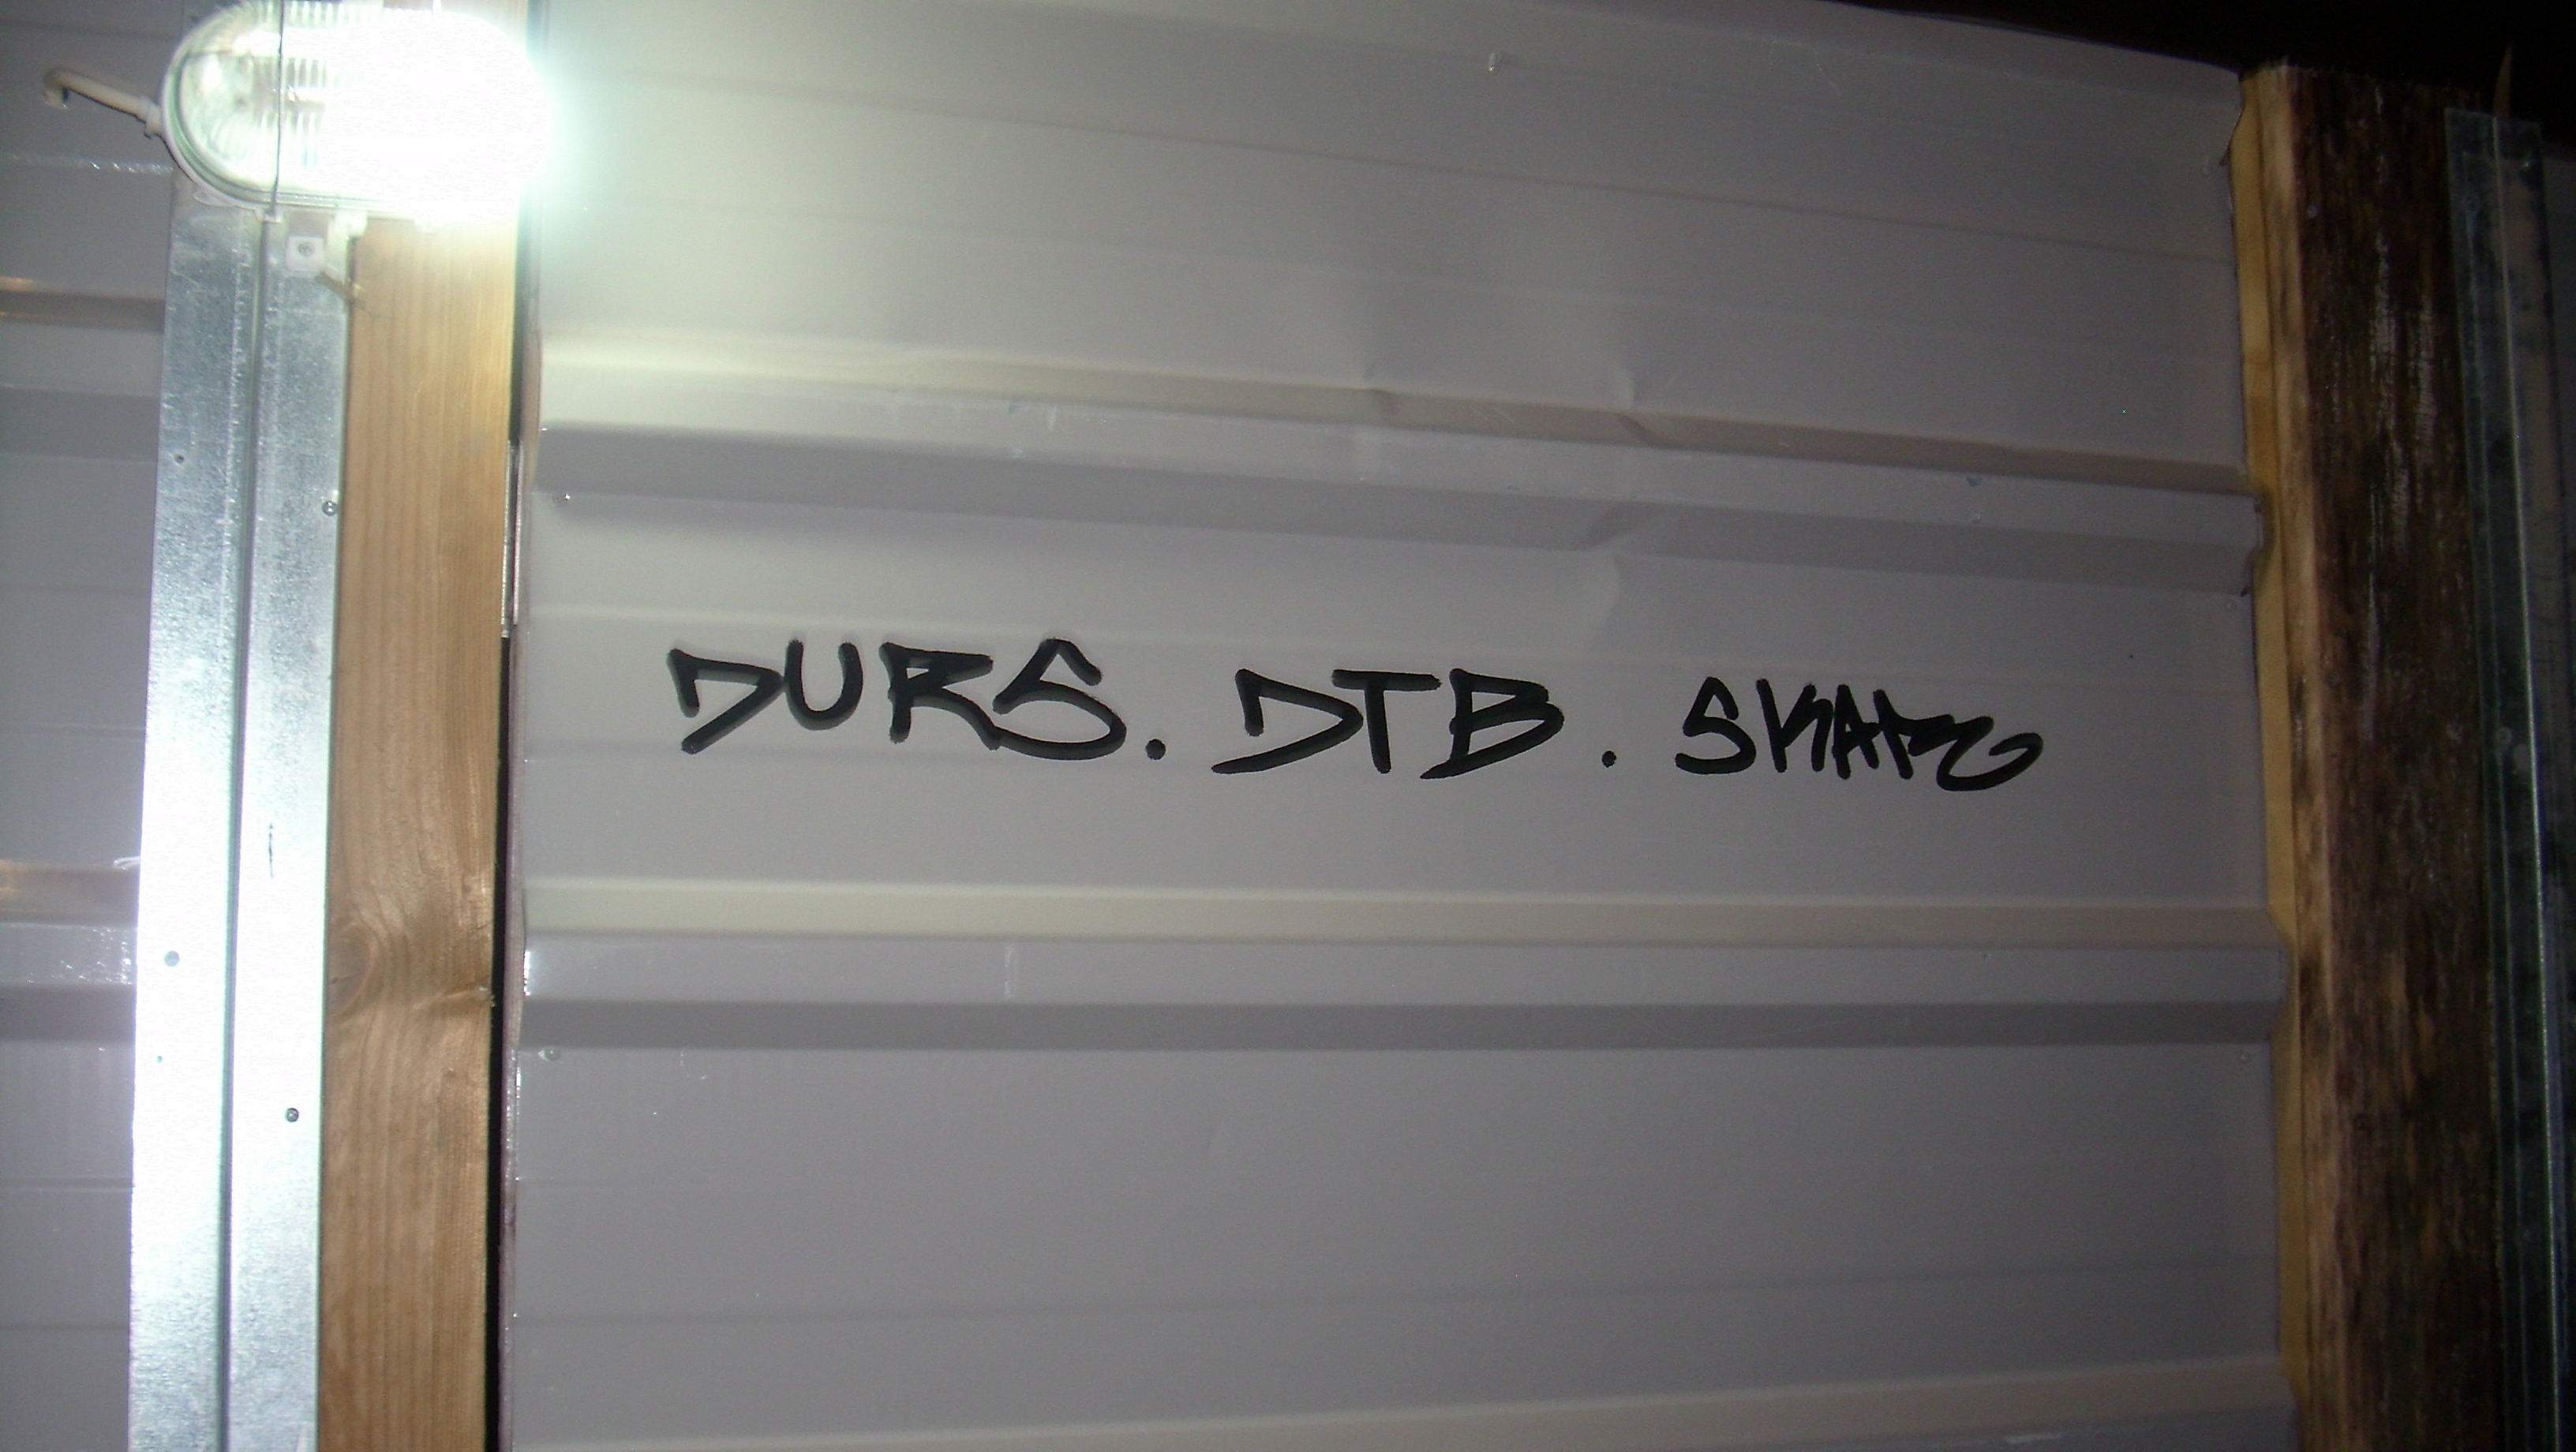 DURS. DTB. SKAR